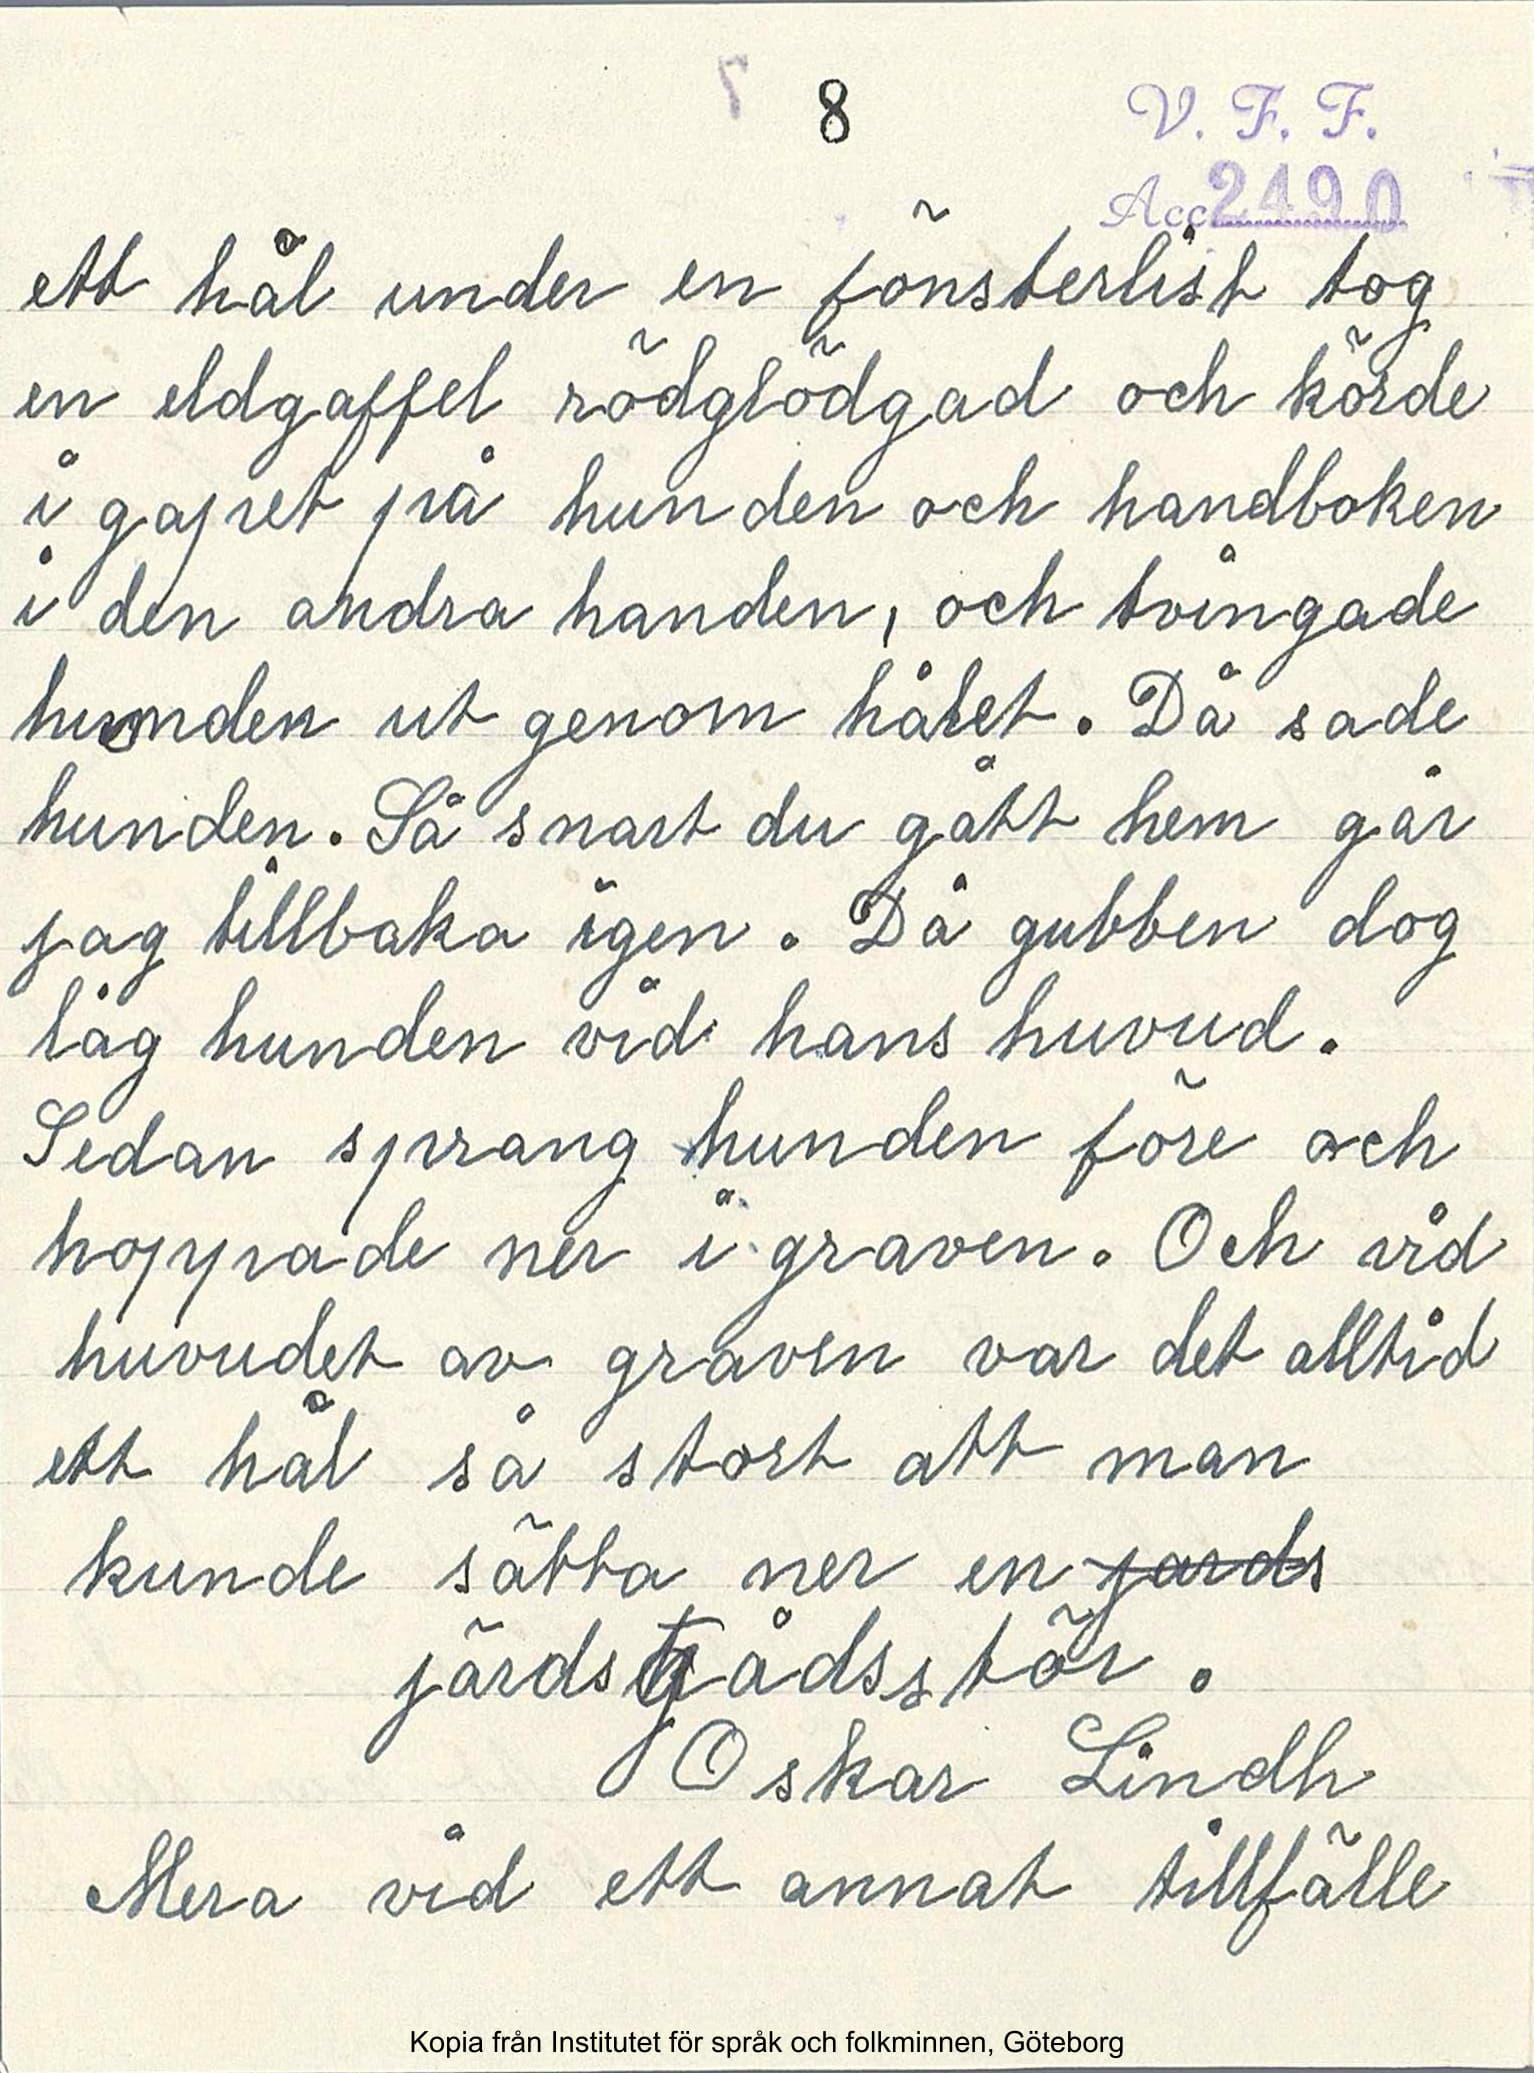 8
V. F. F.
Acc 2490
ett hål under en fönsterlist tog
en eldgaffel rödglödgad och körde
i gapet på hunden och handboken
i den andra handen, och tvingade
hunden ut genom hålet. Då sade
hunden. Så snart du gått hem går
jag tillbaka igen. Då gubben dog
låg hunden vid hans huvud.
Sedan sprang hunden före och
hoppade ner i graven. Och vid
huvudet av graven var det alltid
ett hål så stort att man
kunde sätta ner en jards
järdsgådsstör.
Oskar Lindh
Mera vid ett annat tillfälle
Kopia från Institutet för språk och folkminnen, Göteborg